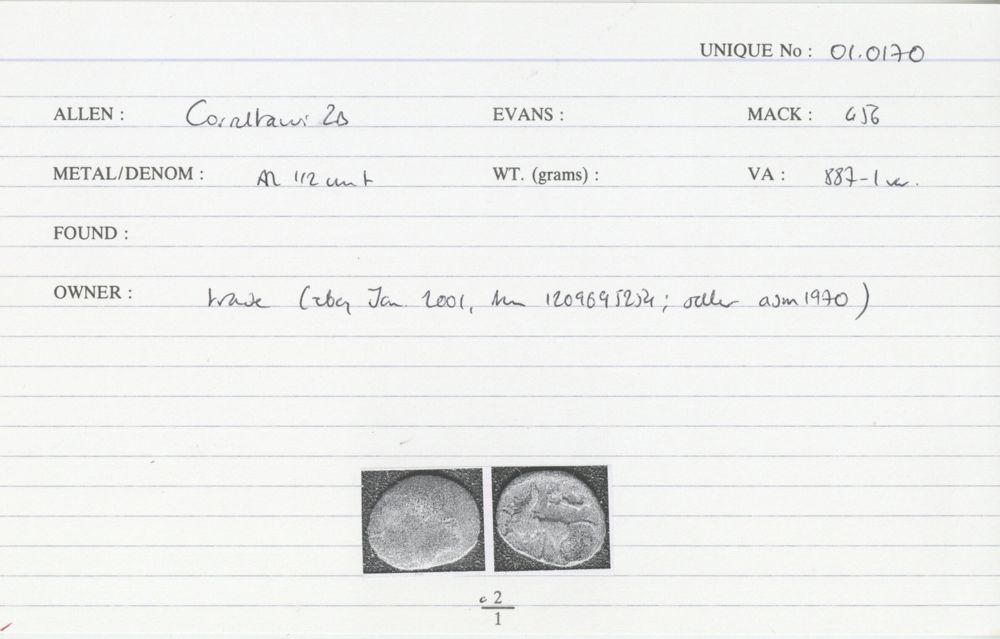 UNIQUE No : 01.0170
ALLEN : Corieltauvi 2B EVANS : MACK : 456
METAL/DENOM : AR 1/2 unit WT. (grams) : VA : 887-1 var.
FOUND :
OWNER : trade (ebay Jan. 2001, 1209695254; seller asm1970)
c 2
1